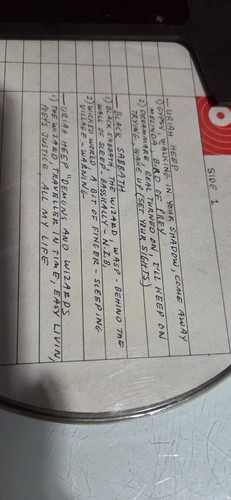 SIDE 1
URIAH HEEP
1) GYPSY, WALKING IN YOUR SHADOW, COME AWAY
MELINDA, BIRD OF PREY
2) DREAMMARE, REAL TURNED ON, I'LL KEEP ON
TRYING, WAKE UP (SET YOUR SIGHTS)
BLACK SABBATH
1) BLACK SABBATH, THE WIZARD, WASP - BEHIND THE
WALL OF SLEEP, BASSICALLY - N.I.B.
2) WICKED WORLD A BIT OF FINGER - SLEEPING
VILLAGE - WARNING
URIAH HEEP "DEMONS AND WIZARDS
1) THE WIZARD, TRAVELLER IN TIME, EASY LIVIN,
POETS JUSTICE, ALL MY LIFE